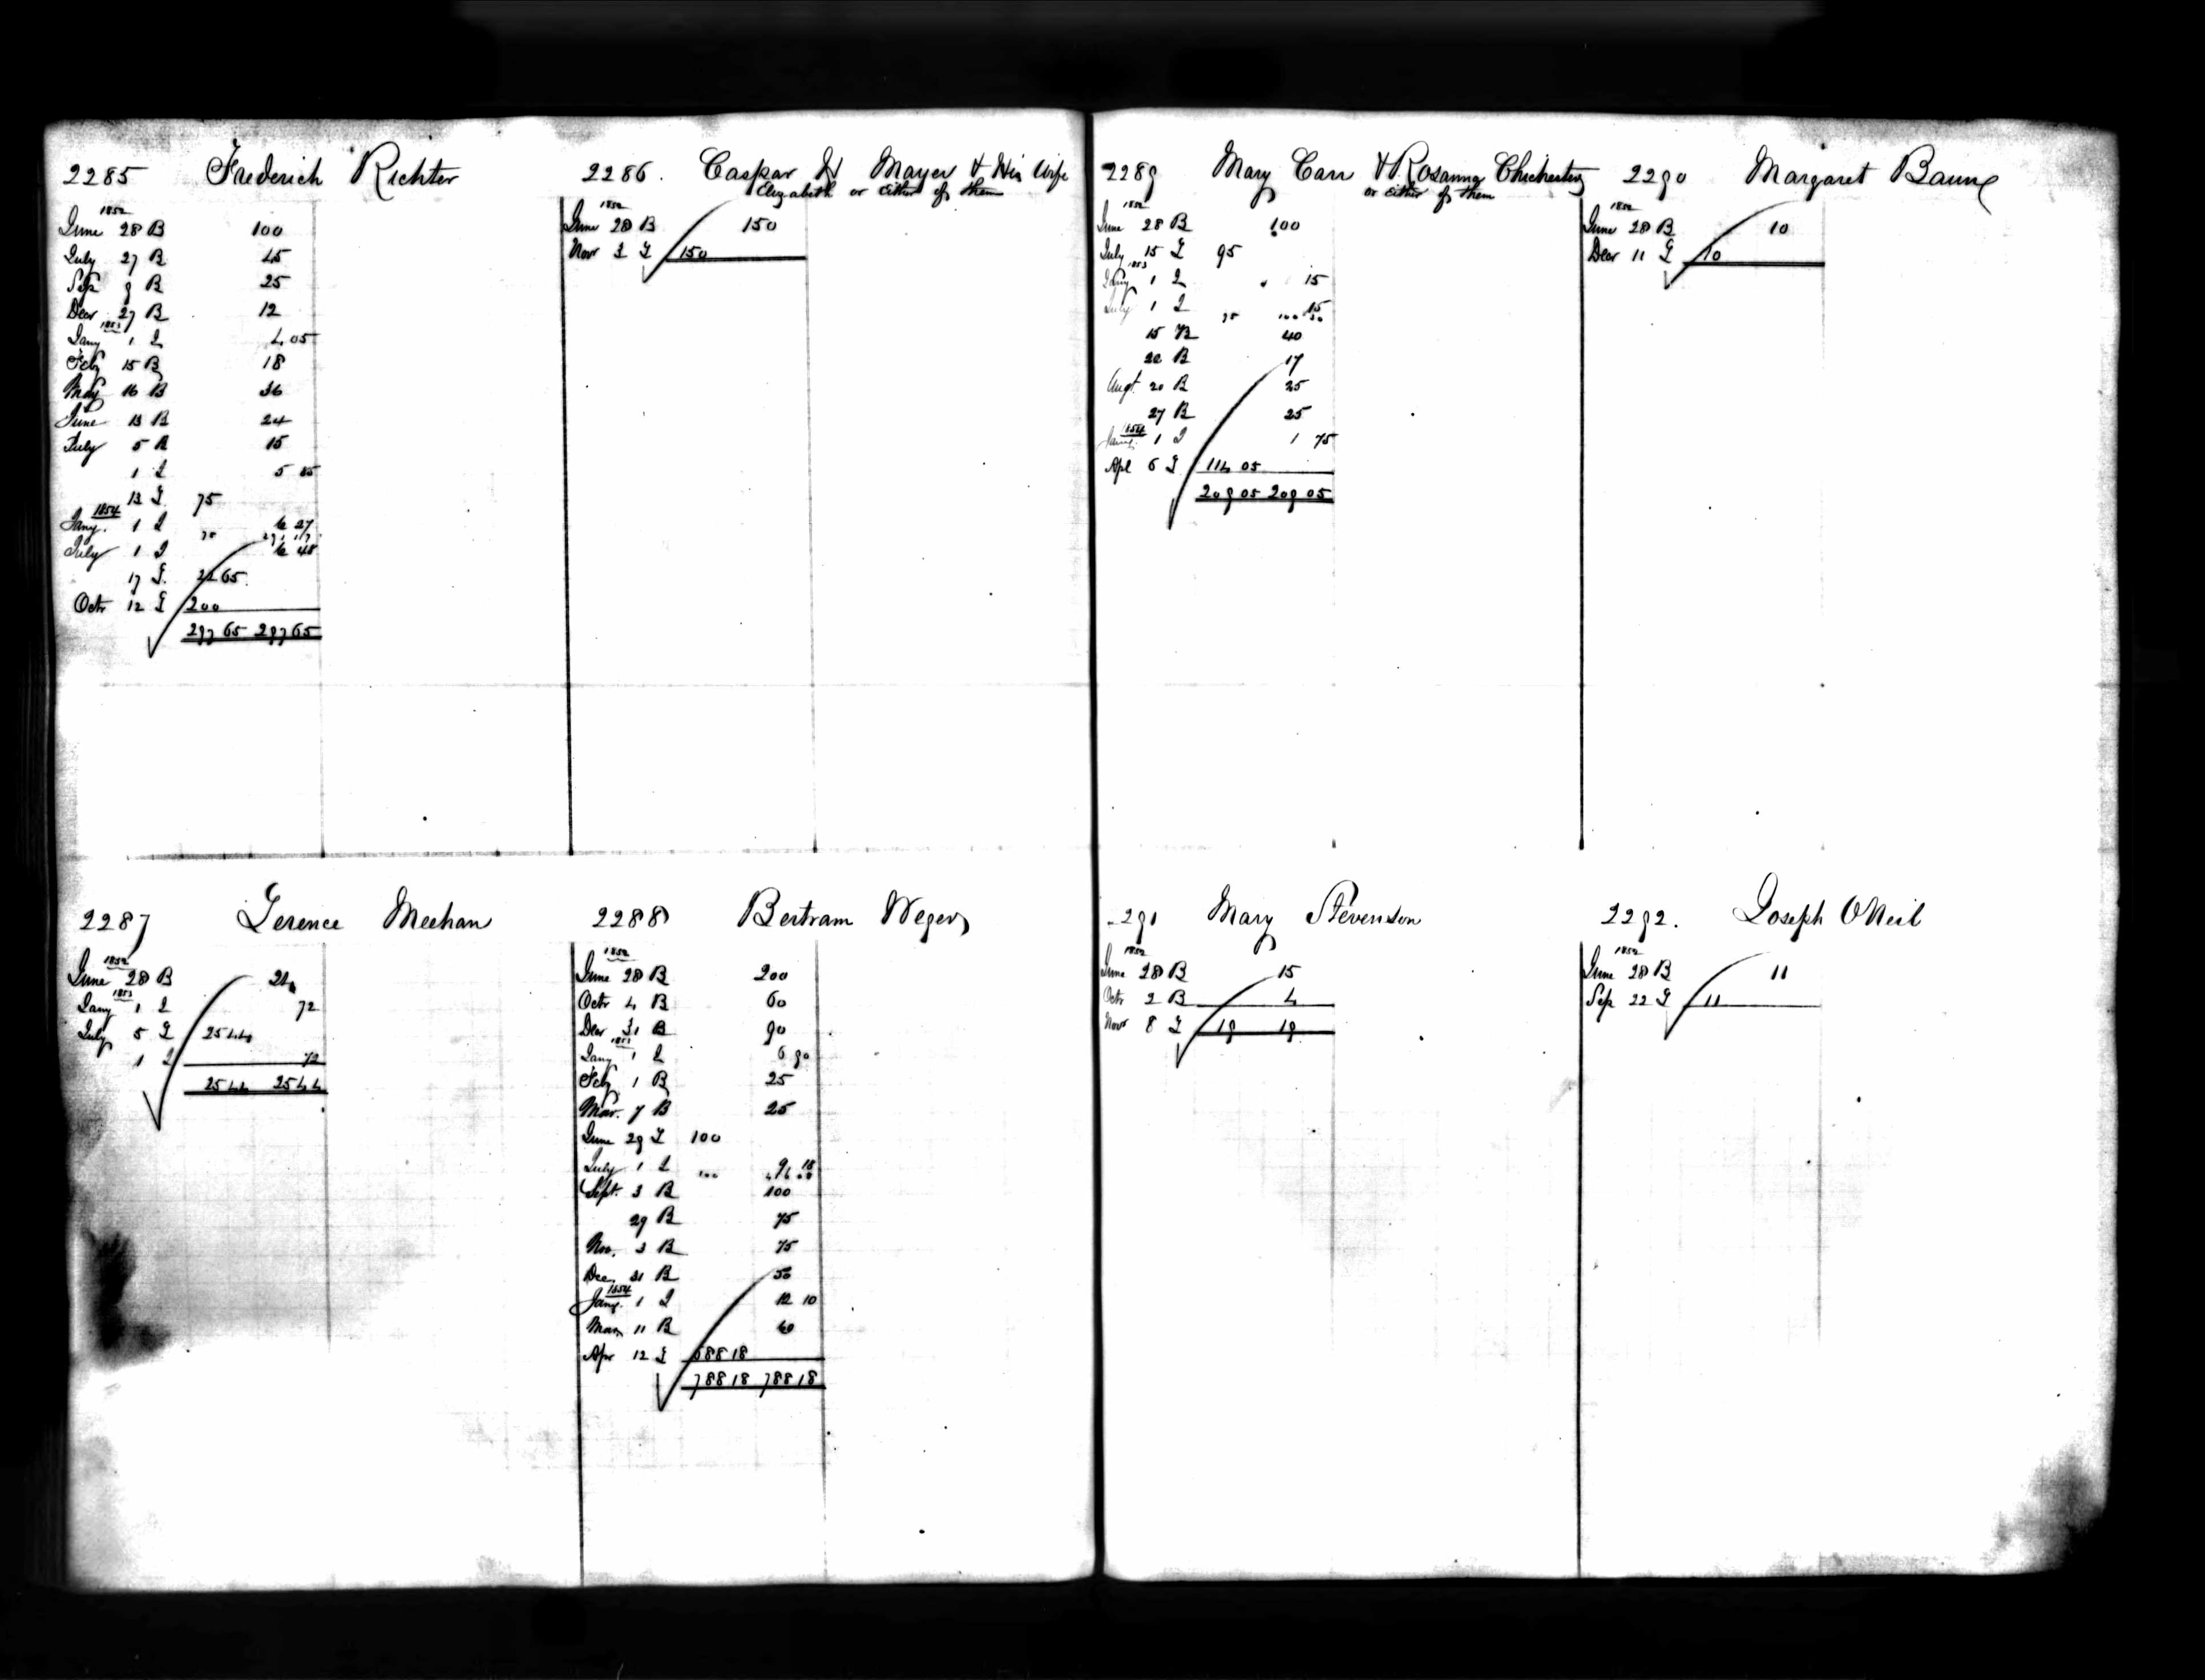 2285 Frederich Richter
1852
June 28 B 100
July 27 B 45
Sep 9 B 25
Decr 27 B 12
1853
Jany 1 I 4 05
Feby 15 B 18
May 16 B 36
June 13 B 24
July 5 B 15
1 I 5 85
13 T 75
1854
Jany. 1 I 6 27
75 291 17
July 1 I 6 48
17 T. 22 65
Octr 12 T 200
297 65 297 65
2286. Caspar H Mayer & His Wife
Elizabeth or Either of them
1852
June 28 B 150
Nov 3 T 150
2287 Terence Meehan
1852
June 28 B 24
1853
Jany 1 I 72
July 5 T 25 44
1 I 72
25 44 25 44
2288 Bertram Wegers
1852
June 28 B 200
Octr 4 B 60
Decr 31 B 90
1853
Jany 1 I 6 90
Feby 1 B 25
Mar. 7 B 25
June 29 T 100
July 1 I 9 18
100 416 08
Sept. 3 B 100
29 B 75
Nov. 3 B 75
Dec. 31 B 50
1854
Jany. 1 I 12 10
Mar 11 B 60
Apr 12 T 688 18
788 18 788 18
2289 Mary Carr & Rosanna Chichester
or Either of them
1852
June 28 B 100
July 15 T 95
1853
Jany 1 I 15
July 1 I 15
95 100 30
15 B 40
20 B 17
Augt 20 B 25
27 B 25
1854
Jany. 1 I 1 75
Apl 6 T 114 05
209 05 209 05
2290 Margaret Baune
1852
June 28 B 10
Decr 11 T 10
2291 Mary Stevenson
1852
June 28 B 15
Octr 2 B 4
Novr 8 T 19 19
2292. Joseph ONeil
1852
June 28 B 11
Sep 22 T 11